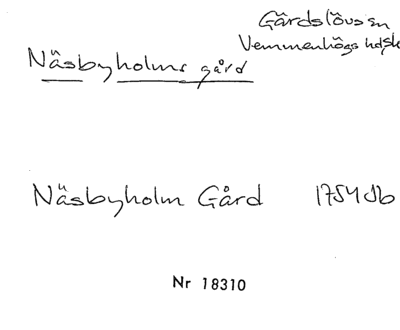 Gärdslövs sn
Vemmenhögs hdsk
Näsbyholms gård
Näsbyholm Gård 1754 Jb
Nr 18310